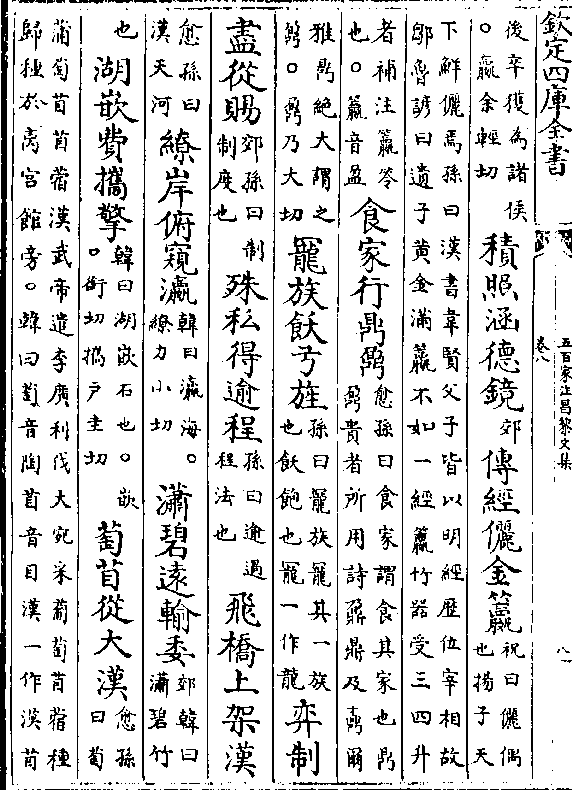 欽定四庫全書
五百家注昌黎文集
卷八
後卒獲為諸侯
。嬴余輕切
積照涵德鏡
郊
傳經儷金籯
祝曰儷偶
也揚子天
下鮮儷焉孫曰漢書韋賢父子皆以明經歷位宰相故
鄒魯諺曰遺子黃金滿籯不如一經籯竹器受三四升
者補注籯笭
也。籯音盈
食家行鼎鼐
愈孫曰食家謂食其家也鼎
鼐貴者所用詩鼐鼎及鼒爾
雅鼎絕大謂之
鼐。鼐乃大切
寵族飫弓旌
孫曰寵族寵其一族
也飫飽也寵一作龍
弈制
盡從賜
郊孫曰制
制度也
殊私得逾程
孫曰逾過
程法也
飛橋上架漢
愈孫曰
漢天河
繚岸俯窺瀛
韓曰瀛海。
繚力小切
瀟碧遠輸委
郊韓曰
瀟碧竹
也
湖嵌費攜擎
韓曰湖嵌石也。嵌
。銜切攜戶圭切
萄苜從大漢
愈孫
曰萄
葡萄苜苜蓿漢武帝遣李廣利伐大宛采葡萄苜蓿種
歸種於离宮館旁。韓曰萄音陶苜音目漢一作漠苜